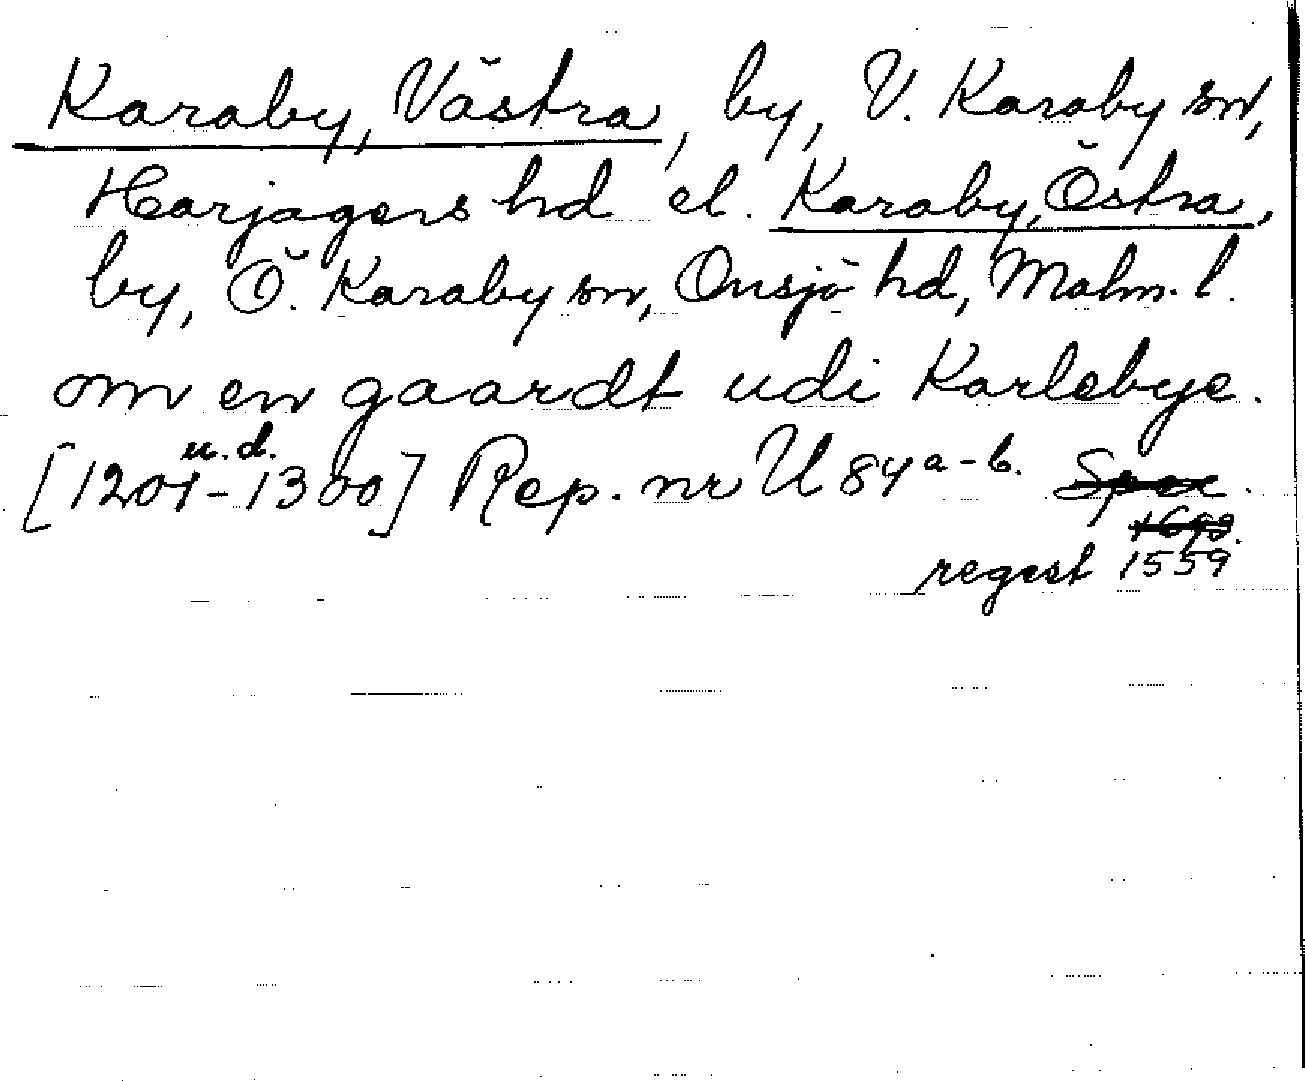 Karaby, Västra, by, V. Karaby sn,
Harjagers hd el. Karaby, Östra,
by, Ö. Karaby sn, Onsjö hd, Malm. l.
om en gaardt udi Karlebye.
u.d.
[1201-1300] Rep. nr U 84 a-b.
regest 1559